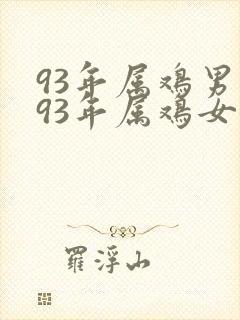 93年属鸡男
93年属鸡女
羅浮山